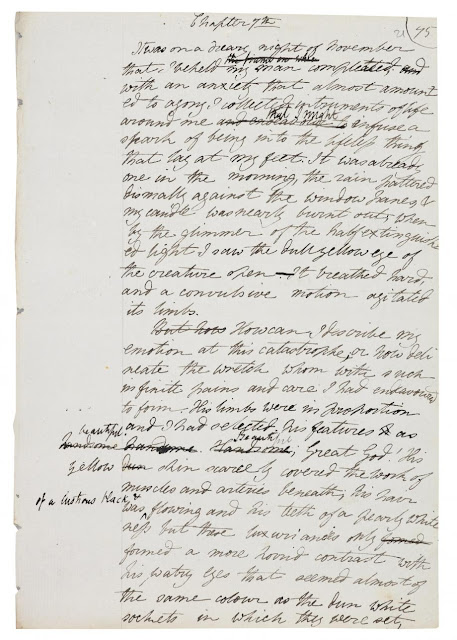 Chapter 7th
21 95
It was on a dreary night of November
the frame on whic
that I beheld my man completed and
with an anxiety that almost amount
ed to agony, I collected instruments of life
that I might
around me and endeavour to infuse a
spark of being into the lifeless thing
that lay at my feet. It was already
one in the morning, the rain pattered
dismally against the window panes, &
my candle was nearly burnt out, when
by the glimmer of the half extinguish
ed light I saw the dull yellow eye of
the creature open — It breathed hard,
and a convulsive motion agitated
its limbs.
But how How can I describe my
emotion at this catastrophe, or how deli
neate the wretch whom with such
infinite pains and care I had endeavoured
to form. His limbs were in proportion
and I had selected his features & as
beautiful.
handsome handsome. Handsome, Great God! His
Beautiful
yellow dun skin scarcely covered the work of
muscles and arteries beneath; his hair
of a lustrous black &
was flowing and his teeth of a pearly white
ness but these luxuriances only formed
formed a more horrid contrast with
his watry eyes that seemed almost of
the same colour as the dun white
sockets in which they were set,